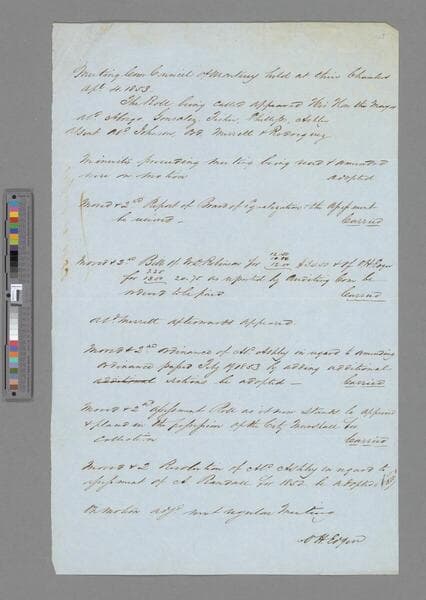 Meeting Com Council of Monterey held at their Chamber
Apl 4. 1853.
The Roll being called appeared His Hon the Mayor
Als Abrego Gonzalez, Fisher, Phillips, Ashby
Absent Als Johnson, Merrell &
Minutes preceeding meeting being read & amended
were on motion adopted
Moved & 2nd Report of Board of Equalization the Assessment
be received - Carried
Moved & 2nd Bill of Wm Robinson for 12.00 & of A H Esgar
for 20.75 as reported by Auditing Com. be
ordered to be paid Carried
Al. Merrell afterwards appeared.
Moved & 2nd ordinance of Al. Ashby in regard to amending
ordinance passed July 1853 by adding additional
additional sections be adopted - Carried
Moved & 2nd Assessment Roll as it now stands be approved
& placed in the possession of the City Marshall for
collection Carried
Moved & 2 Resolution of Al. Ashby in regard to
assessment of A. Randall for 1852 be adopted
On motion adjd until regular Meeting
A H Esgar